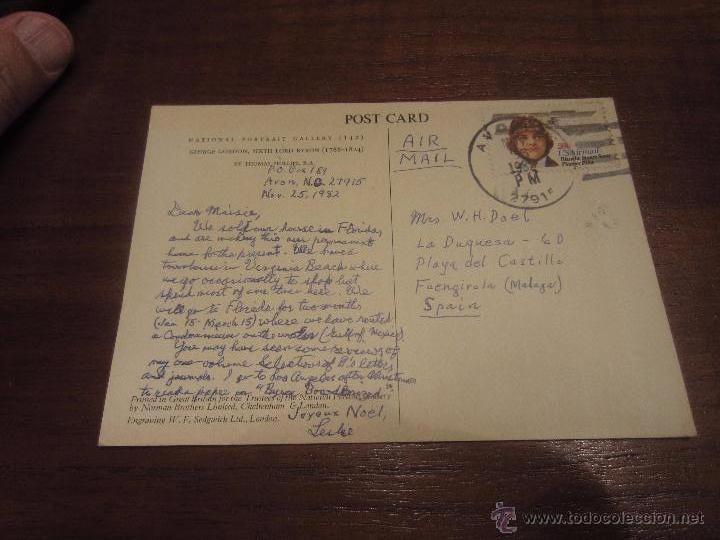 POST CARD
NATIONAL PORTRAIT GALLERY (142)
GEORGE GORDON, SIXTH LORD BYRON (1788-1824)
BY THOMAS PHILLIPS, R.A.
P.O. Box 189
Avon, N.C. 27915
Nov. 25, 1982
Dear Maisie,
We sold our house in Florida,
and are making this our permanent
home for the present. We have a
townhouse in Virginia Beach where
we go occasionally to shop but
spend most of our time here. We
will go to Florida for two months
(Jan 15 - March 15) where we have rented
a Condominium on the water (Gulf of Mexico).
You may have seen some reviews of
my one-volume selection of B's letters
and journals. I go to Los Angeles after Christmas
to read a paper on "Byron
Printed in Great Britain for the Trustees of the National Portrait Gallery
by Norman Brothers Limited, Cheltenham & London.
Engraving W. F. Sedgwick Ltd., London.
Joyeux Noel,
Leslie
AIR
MAIL
AV
198
PM
2791
USAirmail
Blanche Stuart Scott
Pioneer Pilot
Mrs. W. H. Doel
La Duquesa - 6D
Playa del Castillo
Fuengirola (Malaga)
Spain
© www.todocoleccion.net